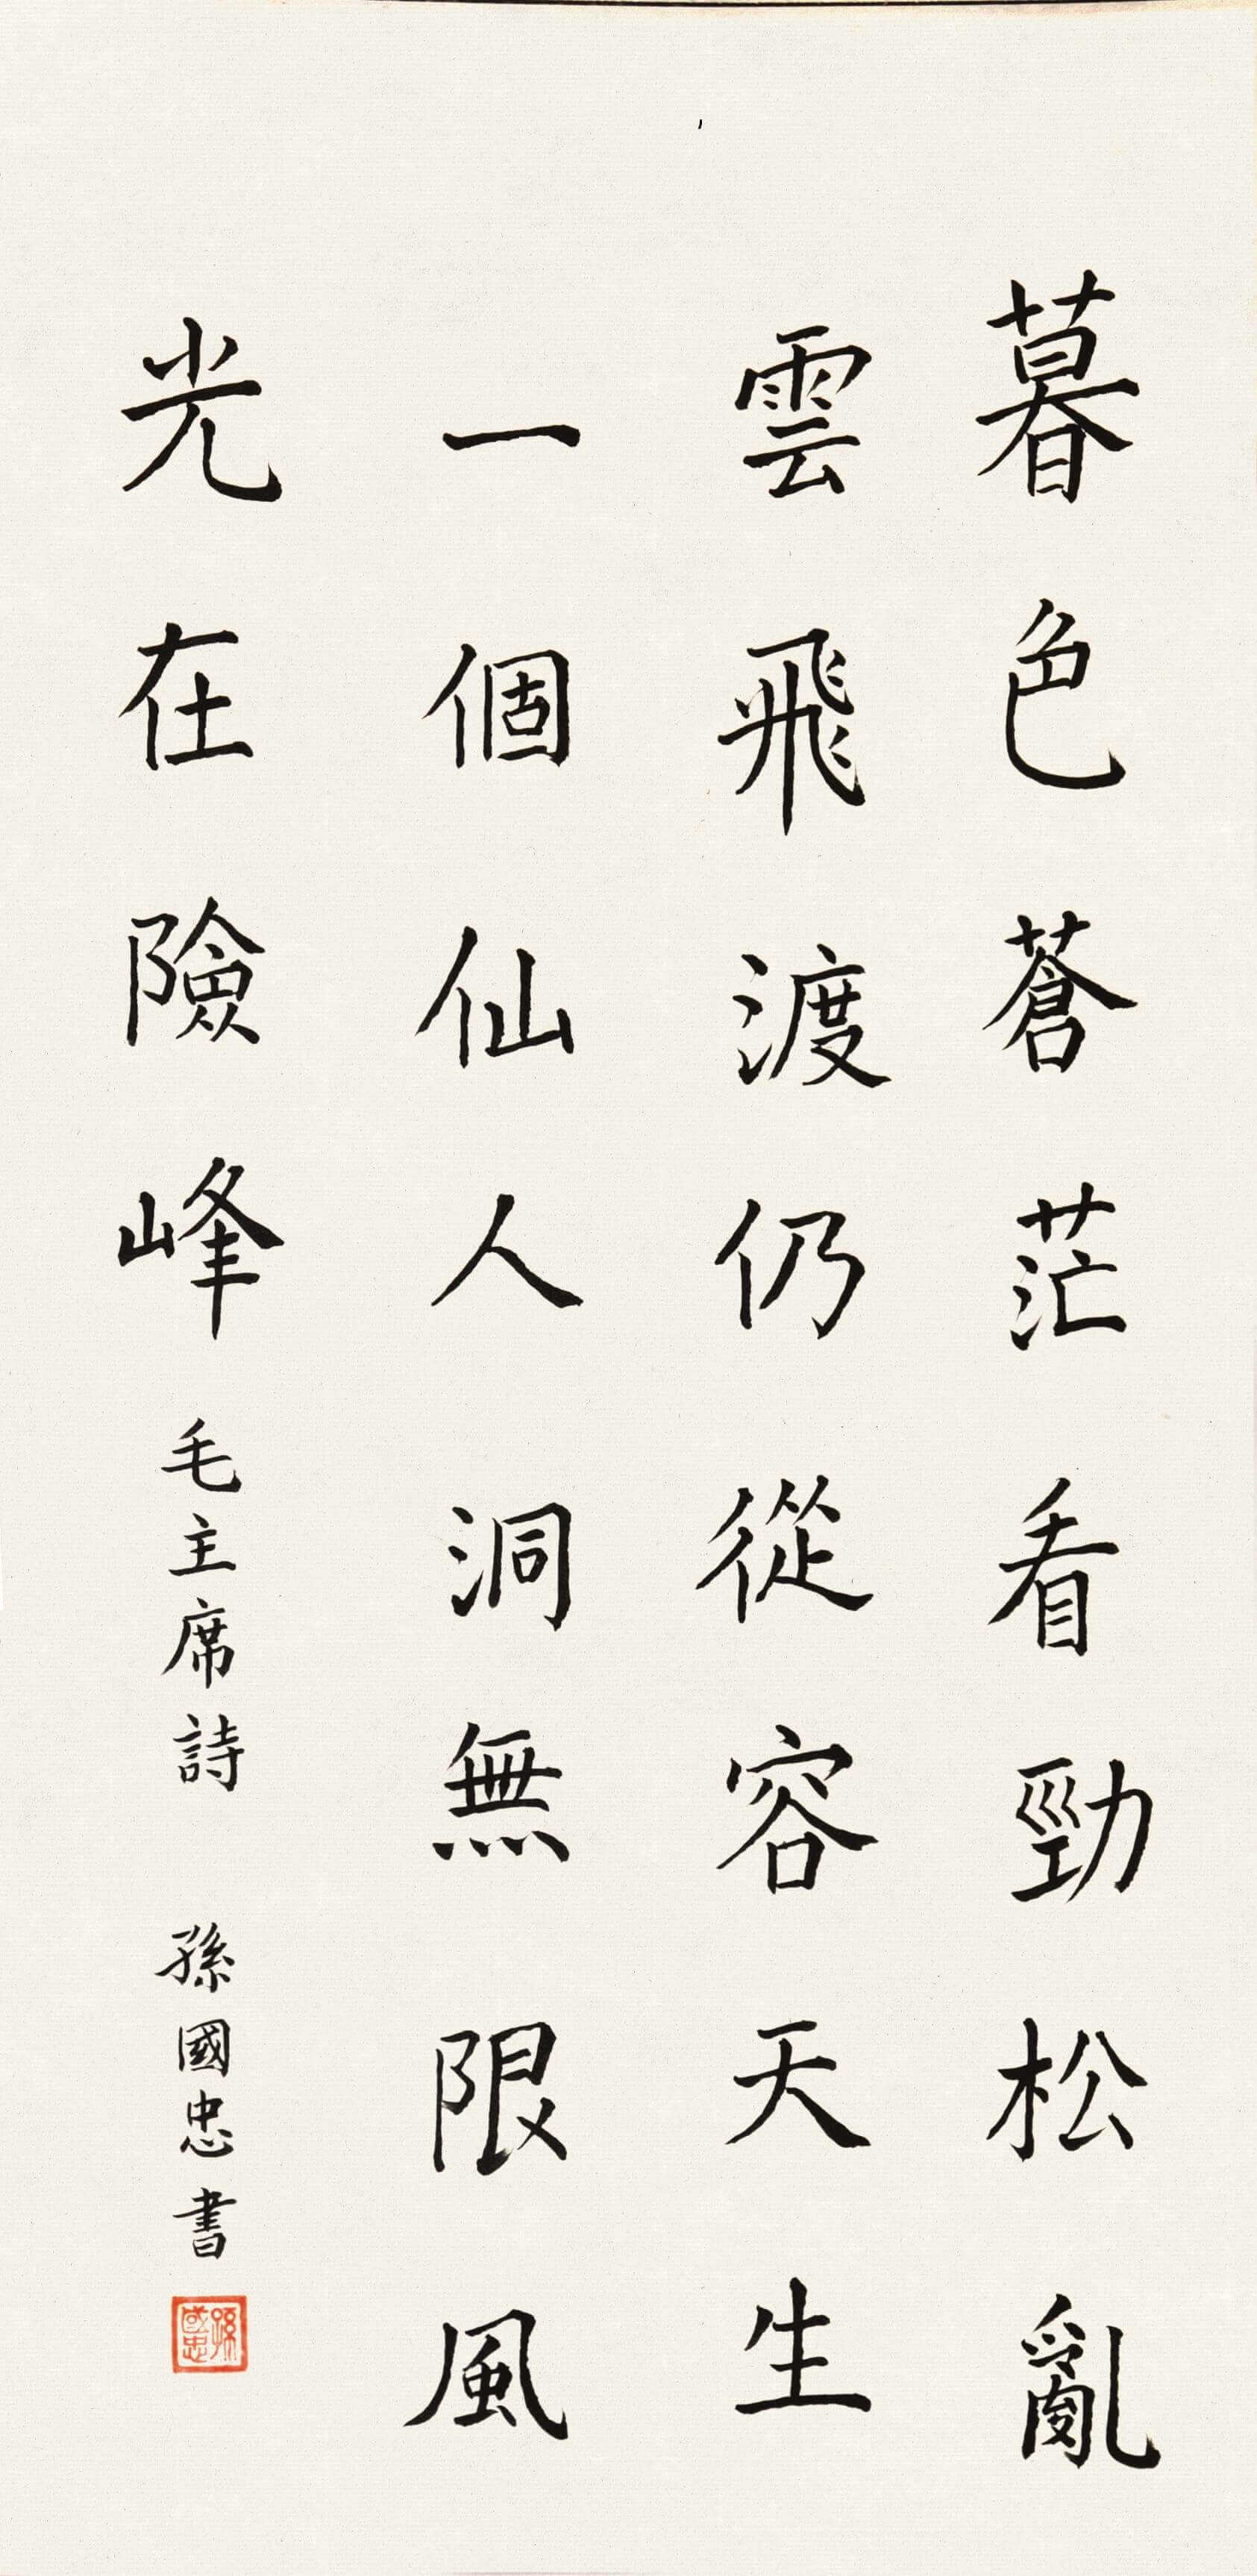 暮色蒼茫看勁松亂
雲飛渡仍從容天生
一個仙人洞無限風
光在險峰
毛主席詩 孫國忠書
孫國忠